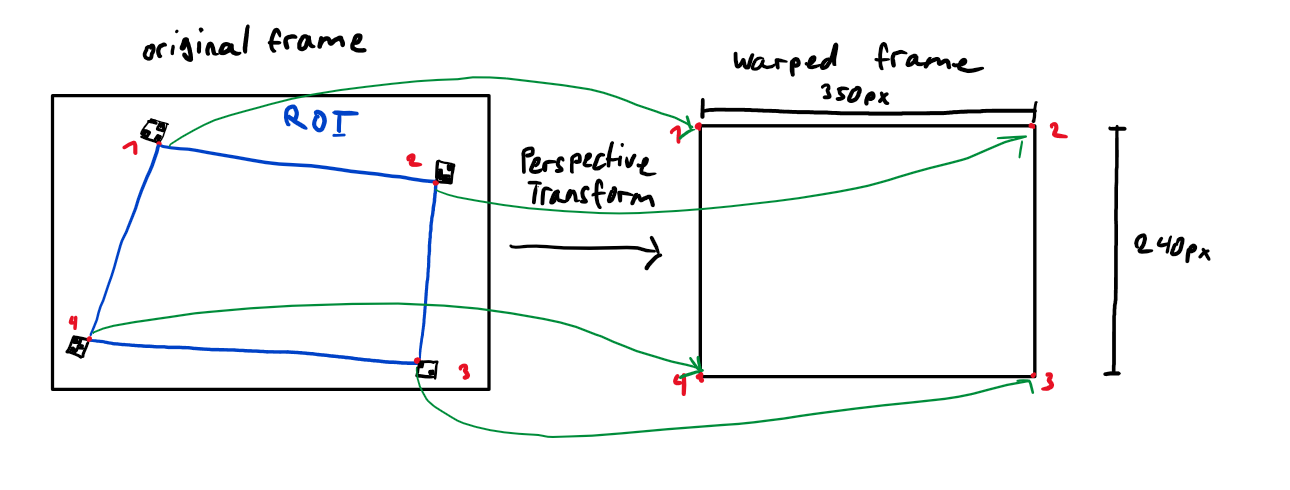 original frame
ROI
1
2
3
4
Perspective
Transform
warped frame
350px
1
2
3
4
240px